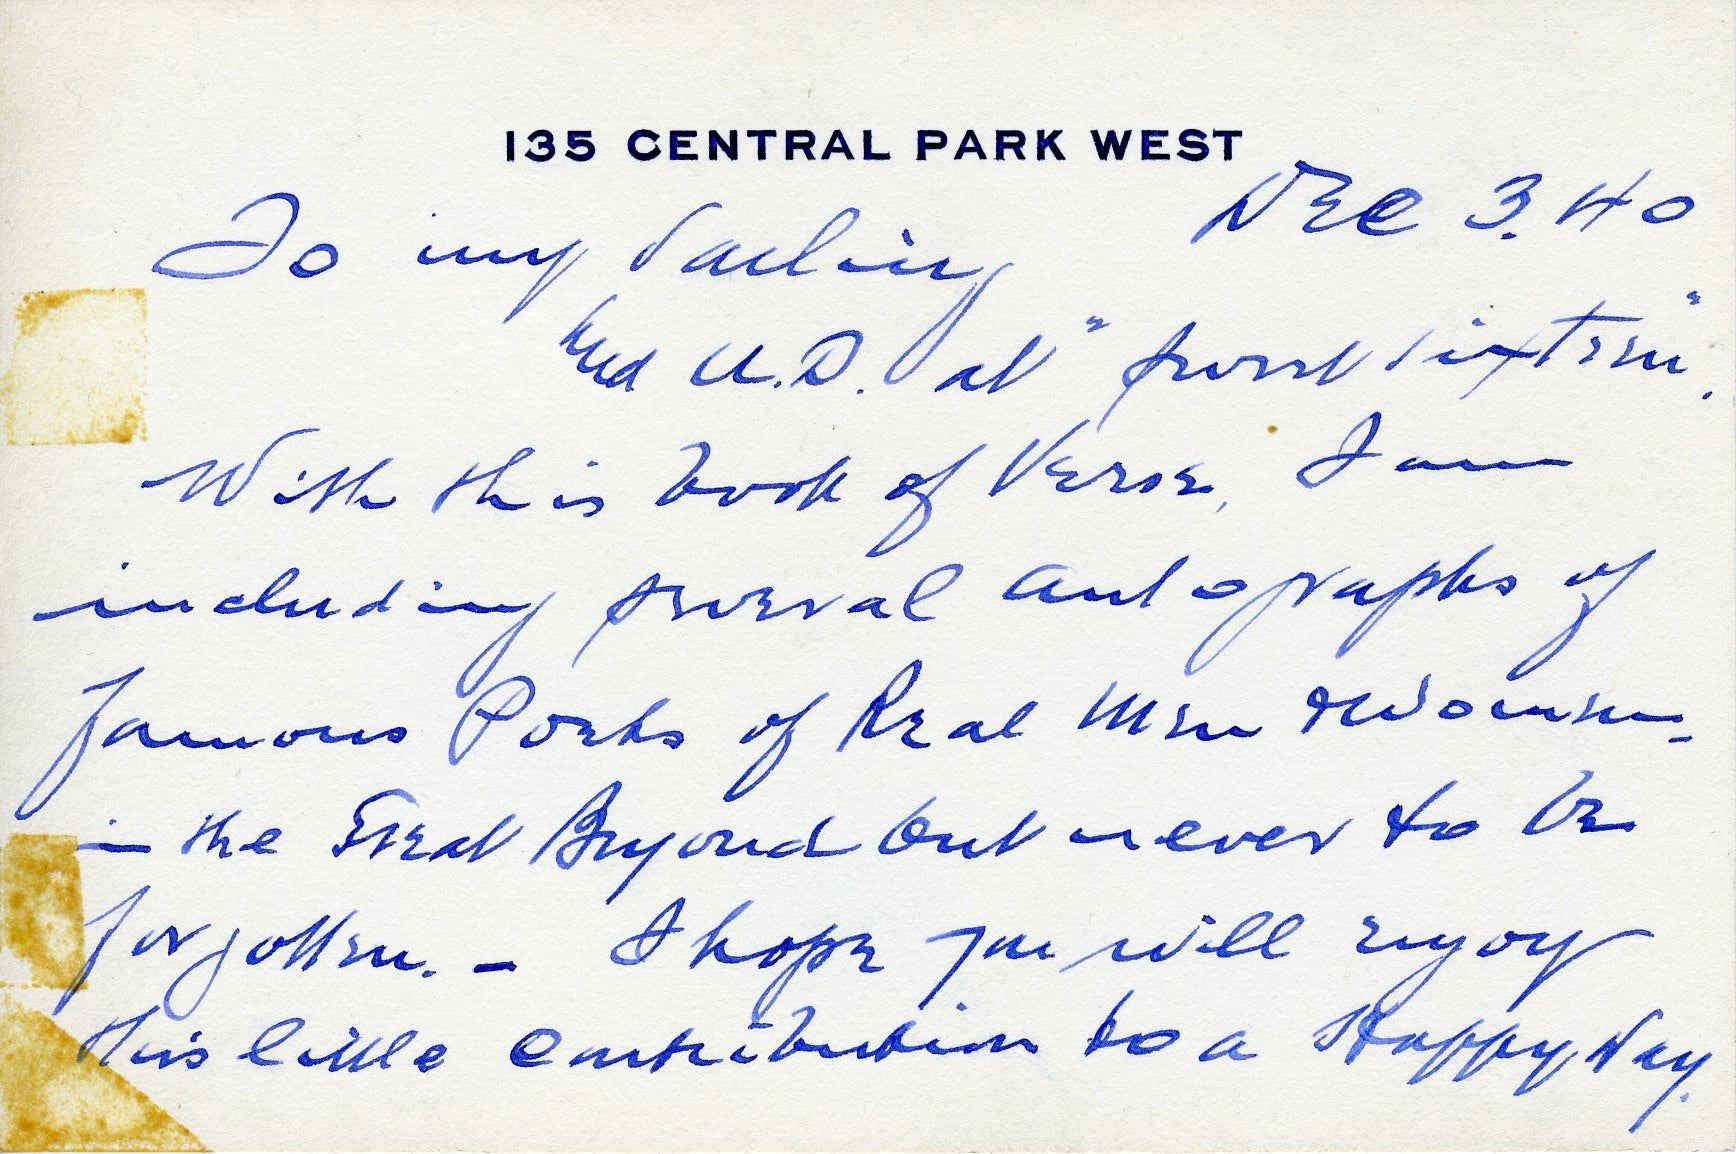 135 CENTRAL PARK WEST
Dec 3. 40
To my darling
U.D. at "sweet sixteen".
With this book of Verse, I am
including several autographs of
famous Poets of Real Men & Women -
in the Great Beyond but never to be
forgotten. - I hope you will enjoy
this little contribution to a Happy Day.